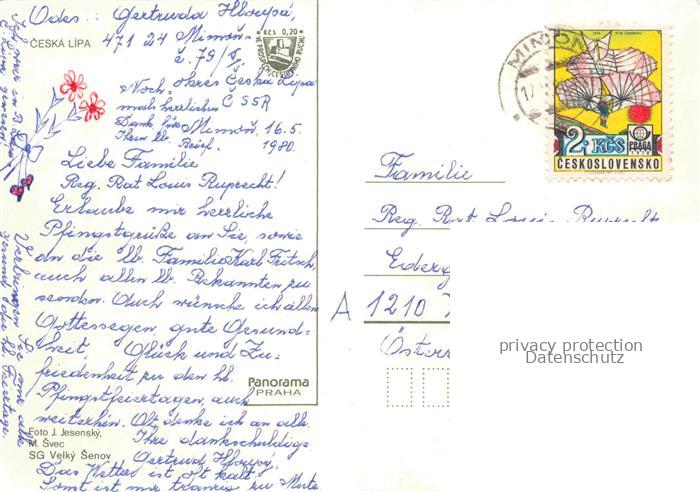 Odes: Gertruda Hloupá,
ČESKÁ LÍPA
471 24 Mimoň
č. 79/I,
okres Česká Lípa
ČSSR
Noch-
mals herzlichen
Dank für
Ihren lb.
Brief.
Mimoň, 16.5.
1980.
Kčs 0,20
Liebe Familie
Reg. Rat Louis Ruprecht!
Erlaube mir herrliche
Pfingstgrüße an Sie, sowie
an die lb. Familie Karl Fritsch,
auch allen lb. Bekannten zu
senden. Auch wünsche ich allen
Gottessegen, gute Gesund=
heit, Glück und Zu=
friedenheit zu den hl.
Pfingstfeiertagen, auch
weiterhin. Oft denke ich an alle.
Ihre dankschuldige
Gertrud
Das Wetter ist oft kalt.
Sonst ist mir traurig zu Mute
Verbringen Sie
gesund
Feiertage.
Foto J. Jesenský,
M. Švec
SG Velký Šenov
Panorama
PRAHA
MIMOŇ
2 Kčs
PRAGA
ČESKOSLOVENSKO
Familie
Reg. Rat Louis
A 1210
privacy protection
Datenschutz